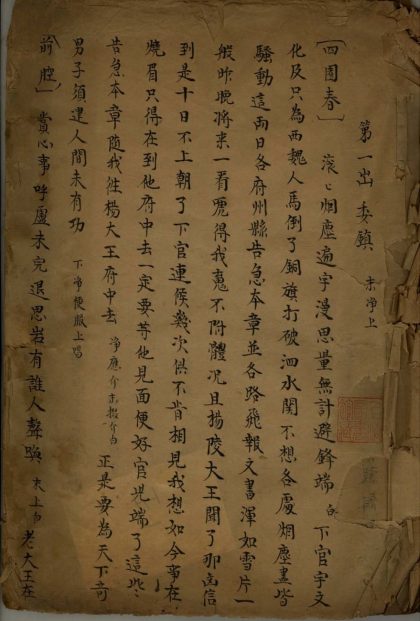 第一出 委鎮 末淨上
〔四園春〕 滚〻烟塵遍宇漫思量無計避鋒端 白 下官宇文
化及只為西魏人馬倒了銅旗打破泗水関不想各處烟塵盡皆
騷動這両日各府州縣告急本章並各路飛報文書渾如雪片一
般昨晚將来一看唬得我魂不附體況且揚陵大王聞了那凶信
到是十日不上朝了下官連候幾次俱不肯相見我想如今事在
燒眉只得在到他府中去一定要等他見面便好官児端了這些
告急本章随我徃楊大王府中去 淨應介末介白 正是要為天下奇
男子須建人間未有功 下淨便服上唱
前腔〕 賞心事呼盧未完退思岩有誰人聲喚 末上白 老大王在